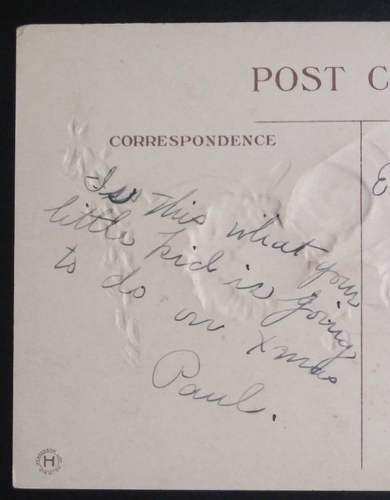 POST C
CORRESPONDENCE
E
Is this what your
little kid is going
to do on xmas
Paul.
H